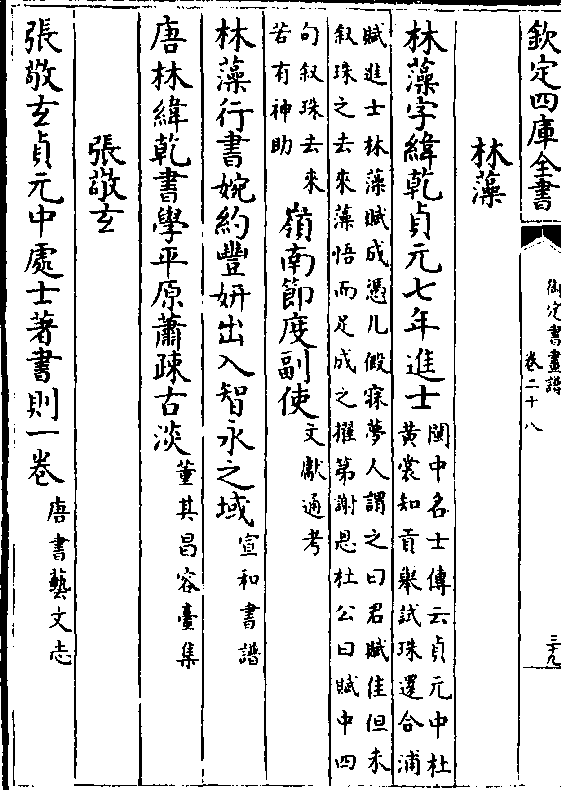 欽定四庫全書
御定書畫譜
卷二十八
三十九
林藻
林藻字緯乾貞元七年進士閩中名士傳云貞元中杜
黃裳知貢舉試珠還合浦
賦進士林藻賦成憑几假寐夢人謂之曰君賦佳但未
叙珠之去來藻悟而足成之擢第謝恩杜公曰賦中四
句叙珠去來
若有神助
嶺南節度副使文獻通考
林藻行書婉約豐妍出入智永之域宣和書譜
唐林緯乾書學平原蕭疎古淡董其昌容臺集
張敬玄
張敬玄貞元中處士著書則一卷唐書藝文志